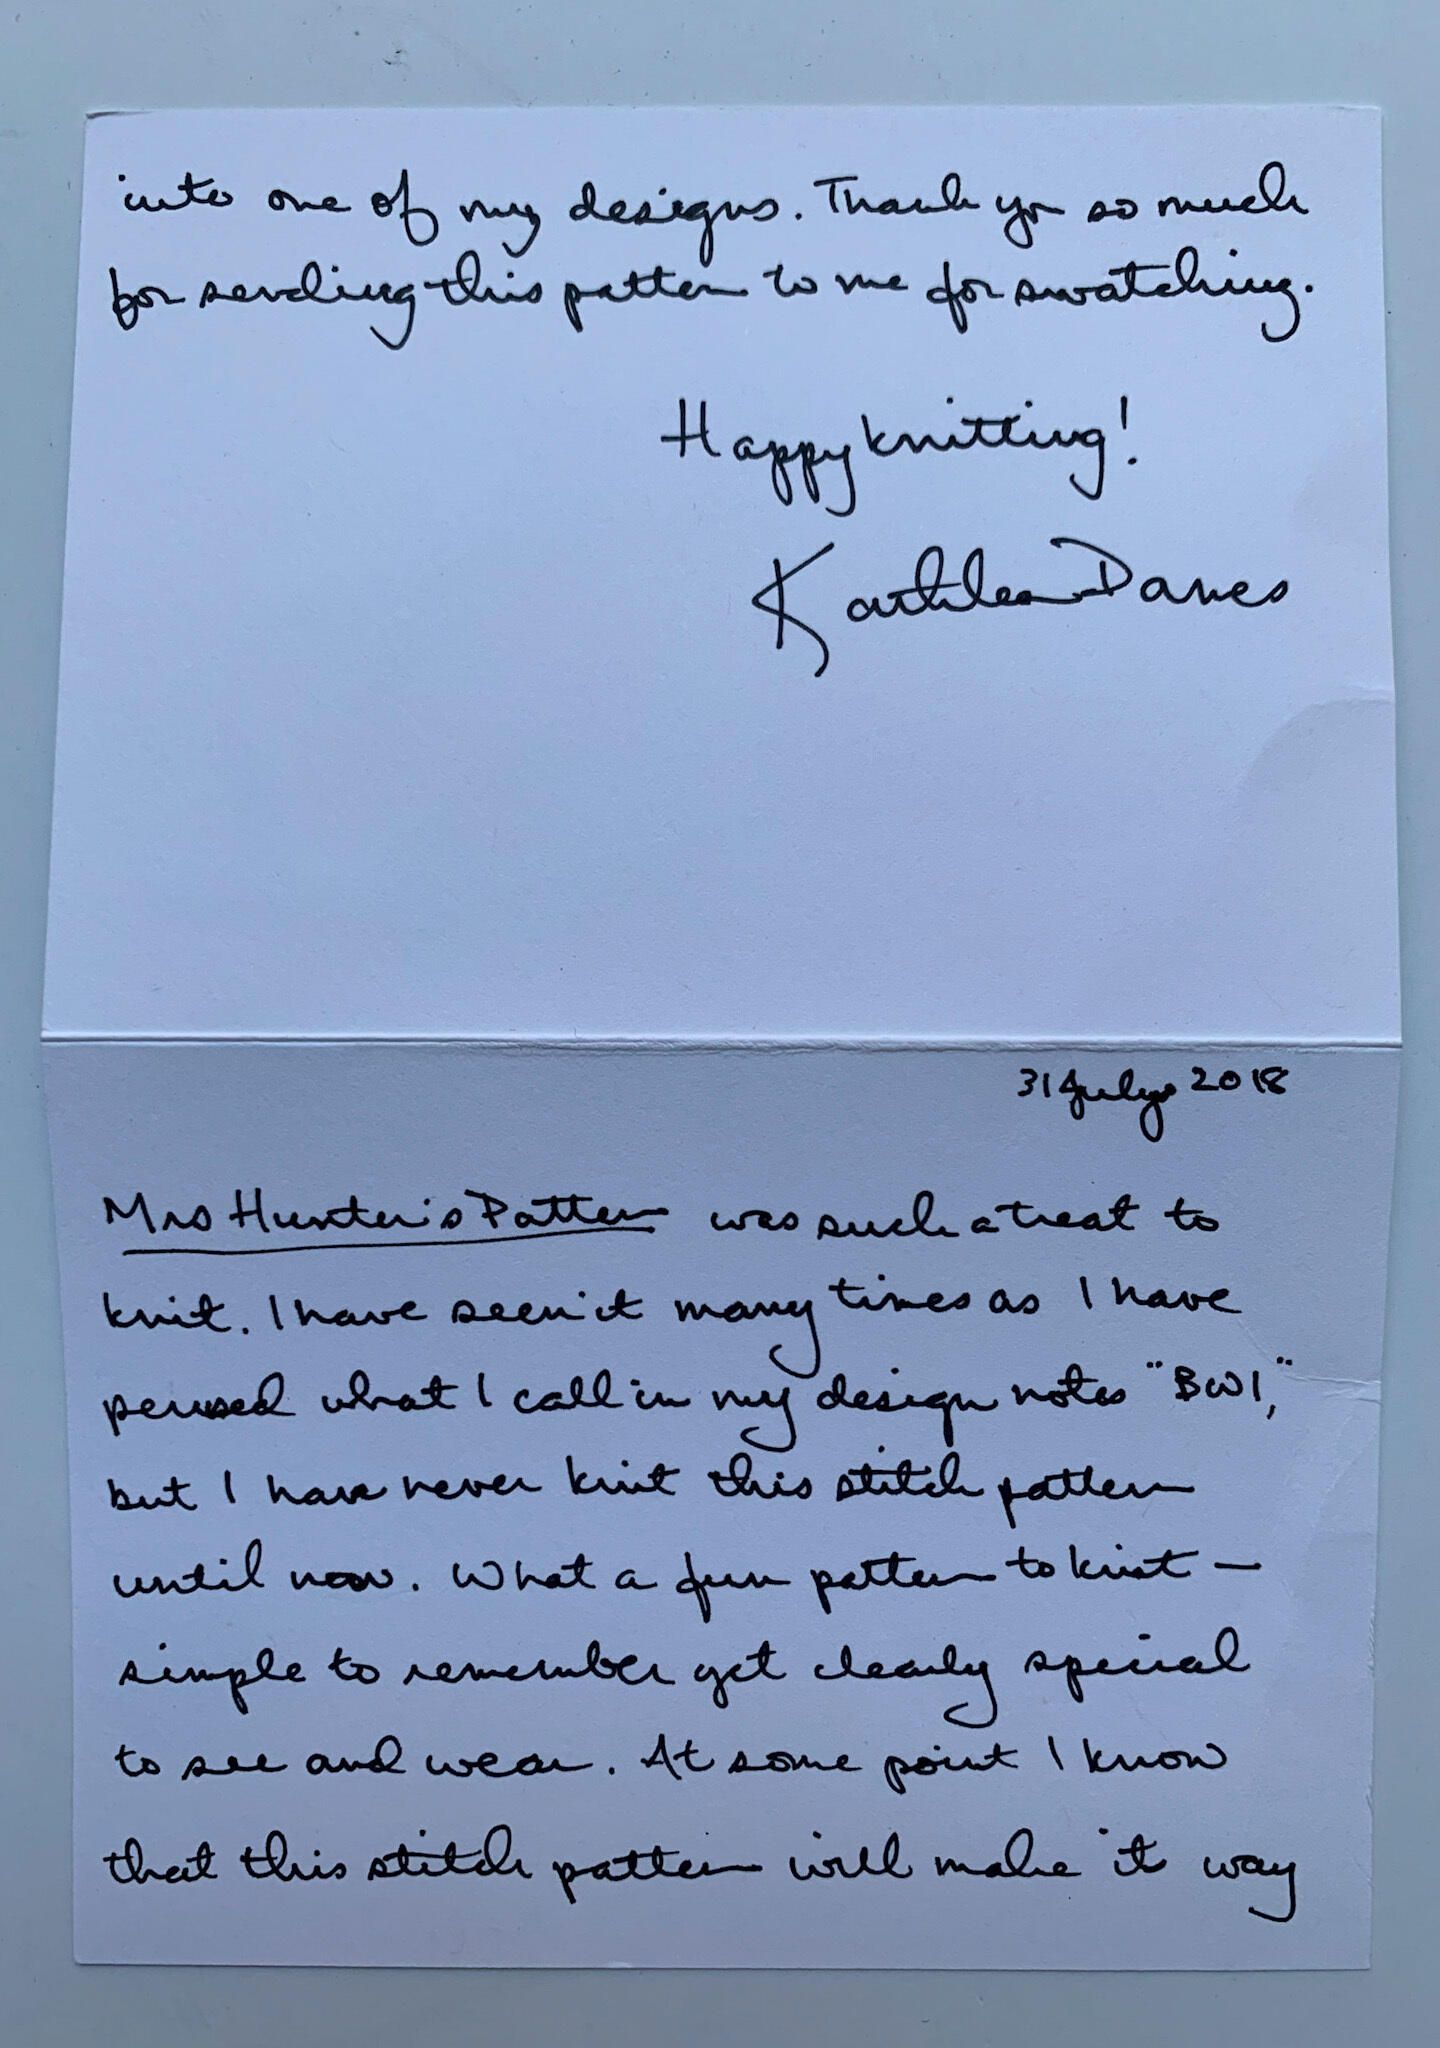 into one of my designs. Thank you so much
for sending this pattern to me for swatching.
Happy knitting!
Kathleen Dames
31 July 2018
Mrs Hunter's Pattern was such a treat to
knit. I have seen it many times as I have
perused what I call in my design notes "BW1,"
but I have never knit this stitch pattern
until now. What a fun pattern to knit —
simple to remember yet clearly special
to see and wear. At some point I know
that this stitch pattern will make it way